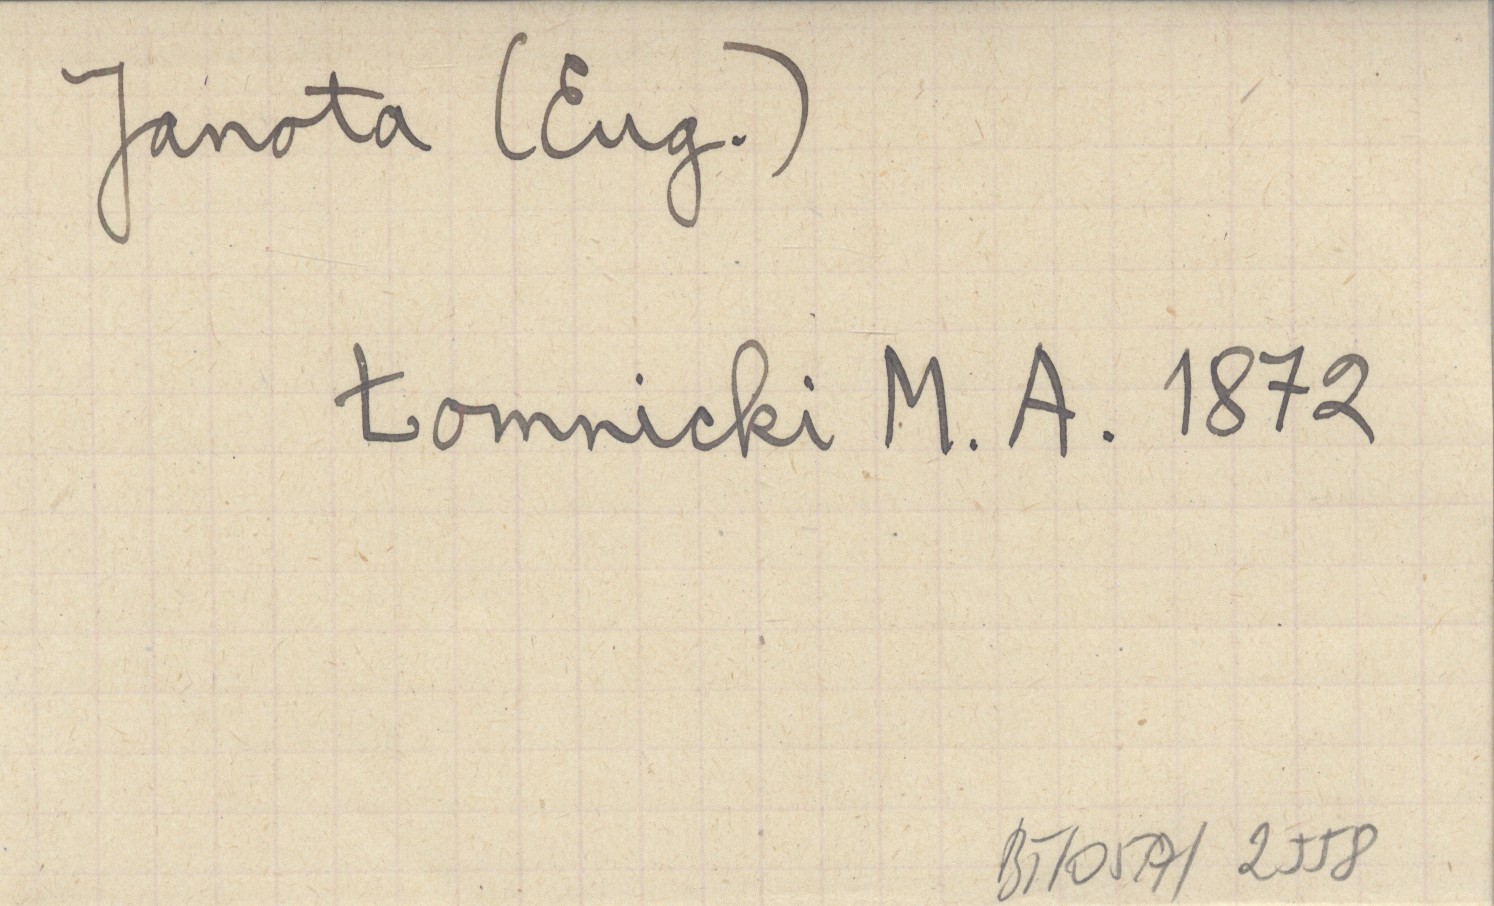 Janota (Eug.)
Łomnicki M. A. 1872
2558